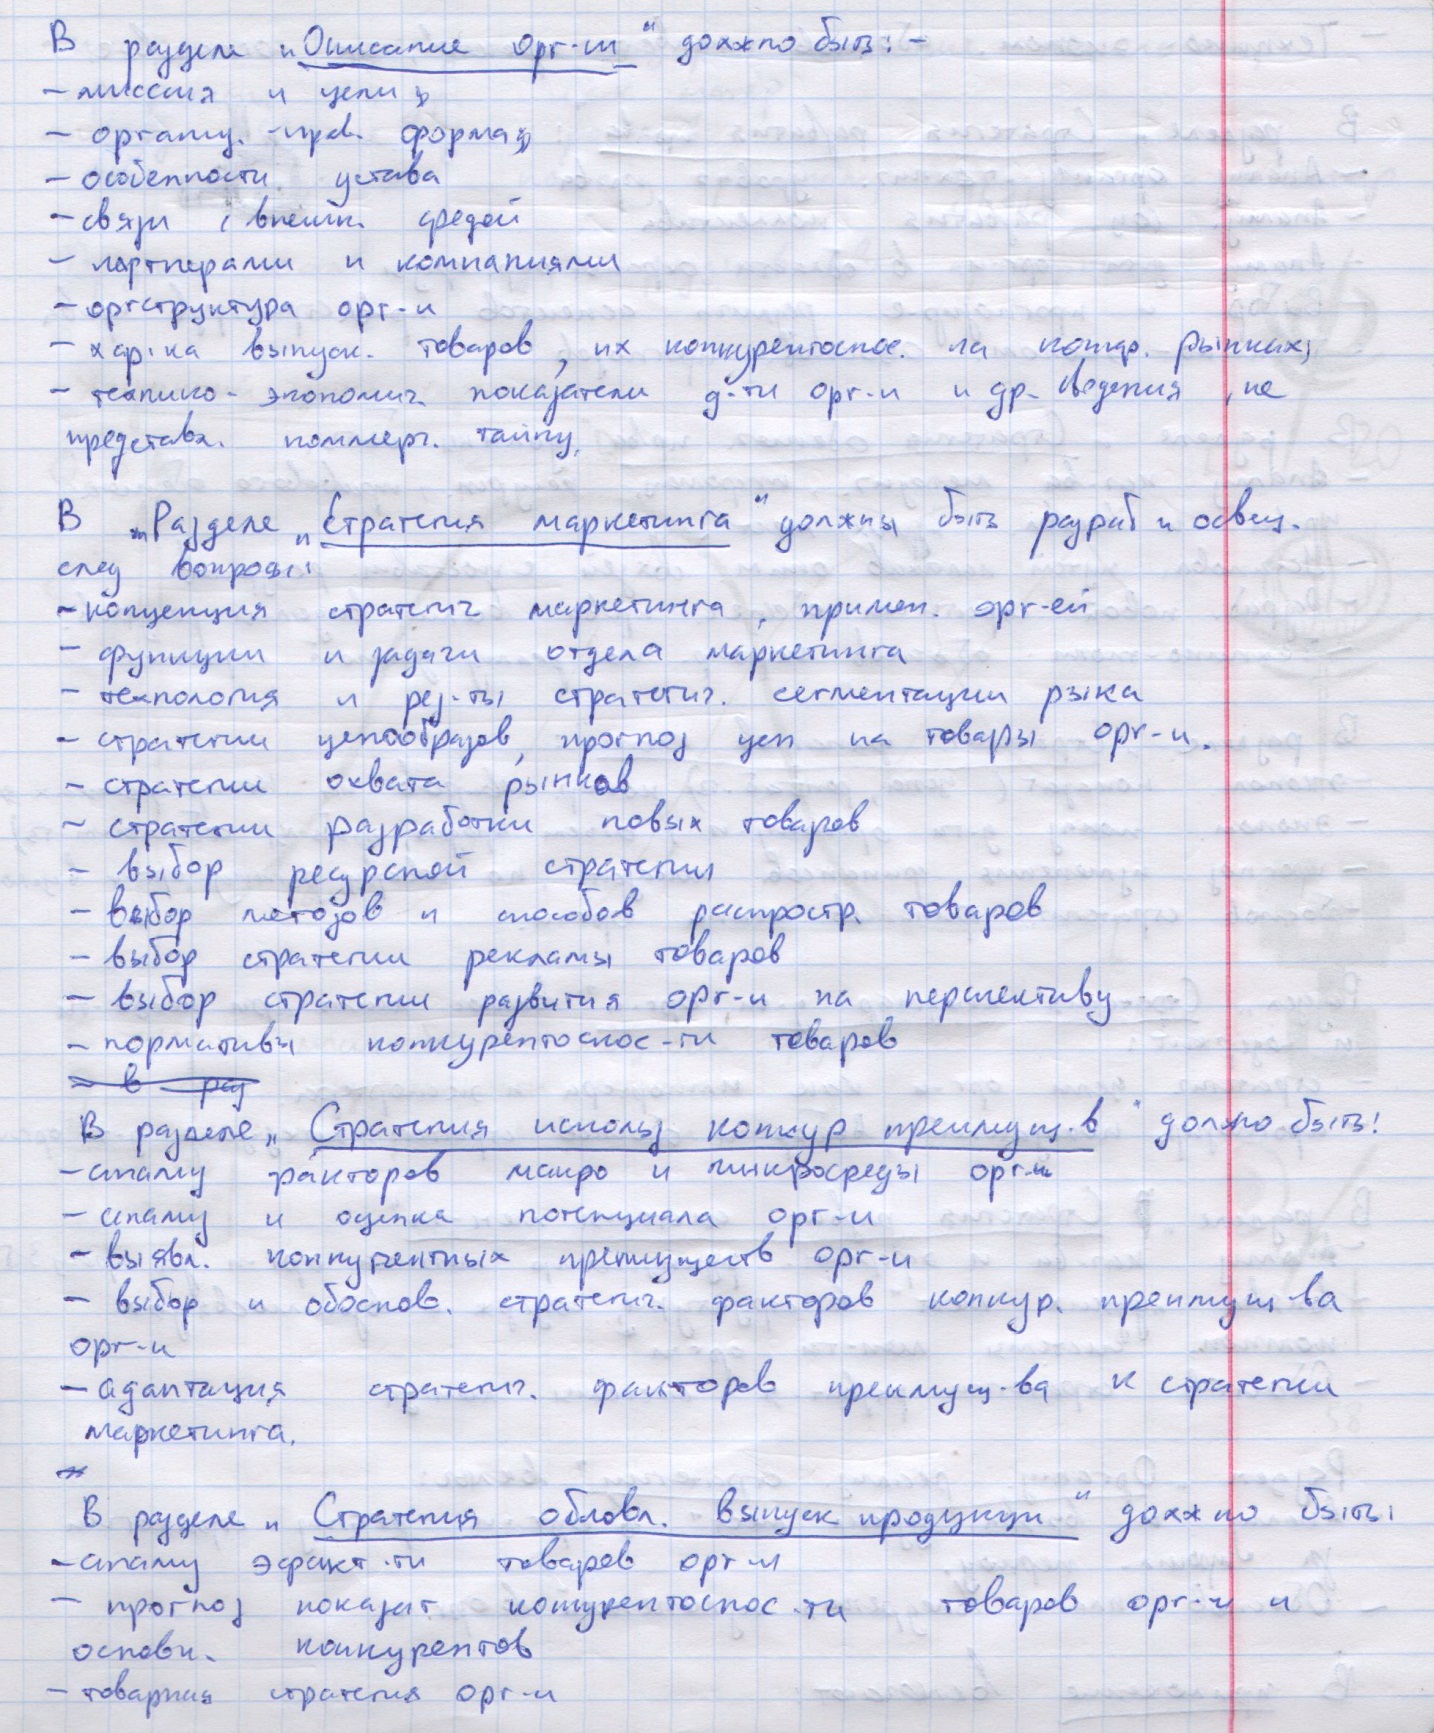 В разделе „Описание орг-ии" должно быть: -
- миссия и цели;
- организ.-прав. форма;
- особенности устава
- связи с внешн. средой
- партнерами и компаниями
- оргструктура орг-и
- хар-ка выпуск. товаров, их конкурентоспос. на конкр. рынках;
- технико-экономич. показатели д-ти орг-и и др. сведения, не
представл. коммерч. тайну.
В „Разделе „Стратегия маркетинга" должны быть разраб и освещ.
след вопросы:
- концепция стратегич маркетинга, примен. орг-ей
- функции и задачи отдела маркетинга
- технология и рез-ты стратегич. сегментации рынка
- стратегии ценообразов, прогноз цен на товары орг-и.
- стратегии охвата рынков
- стратегии разработки новых товаров
- выбор ресурсной стратегии
- выбор методов и способов распростр. товаров
- выбор стратегии рекламы товаров
- выбор стратегии развития орг-и на перспективу
- нормативы конкурентоспос-ти товаров
- в раз
В разделе „Стратегия использ конкур преимущ-в" должно быть:
- анализ факторов макро и микросреды орг-и
- анализ и оценка потенциала орг-и
- выявл. конкурентных преимуществ орг-и
- выбор и обоснов. стратегич. факторов конкур. преимущ-ва
орг-и
- адаптация стратегич. факторов преимущ-ва к стратегии
маркетинга.
В разделе „Стратегия обновл. выпуск продукции" должно быть:
- анализ эффект-ти товаров орг-и
- прогноз показат конкурентоспос-ти товаров орг-и и
основн. конкурентов
- товарная стратегия орг-и